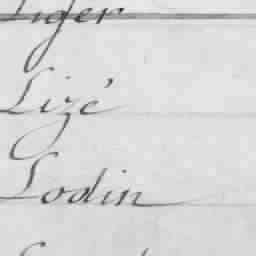 Liger
Lizé
Lodin